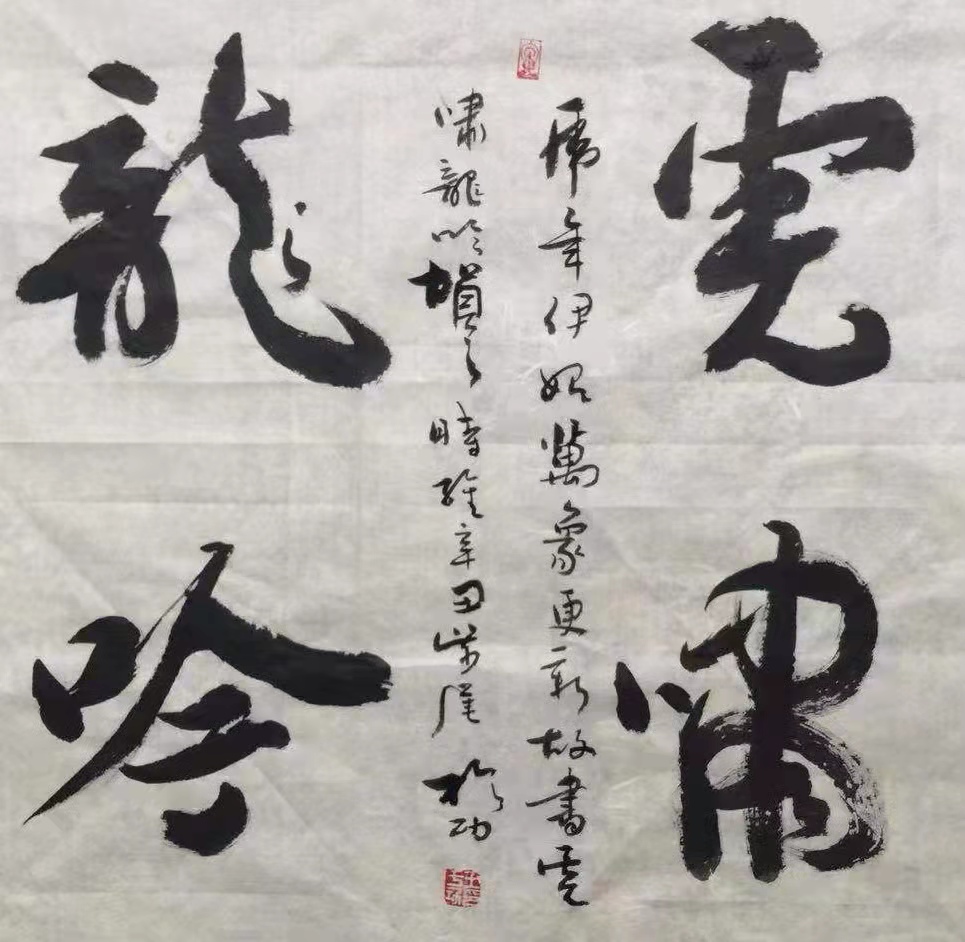 虎嘯
虎年伊始萬象更新故書虎
嘯龍吟賀之時維辛丑歲尾
龍吟